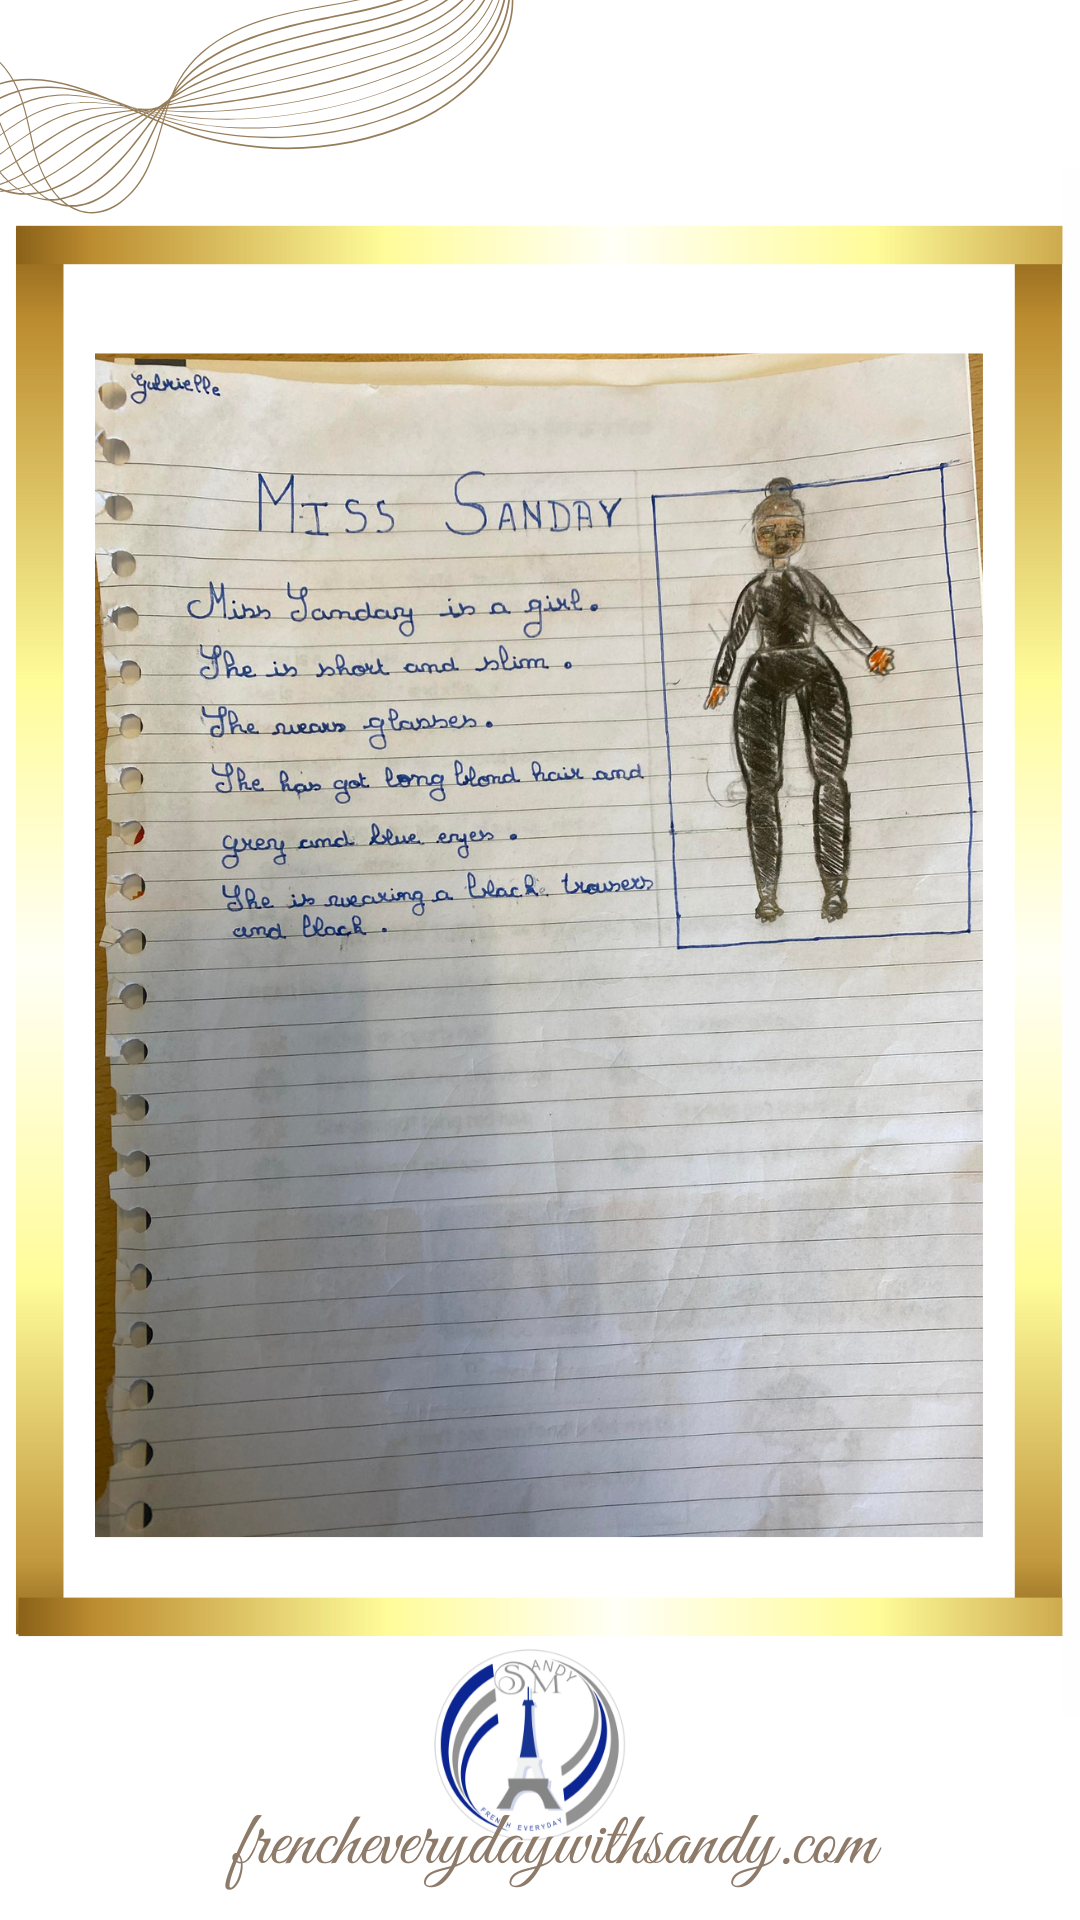 Gabrielle
MISS SANDAY
Miss Sanday is a girl.
She is short and slim.
She wears glasses.
She has got long blond hair and
grey and blue eyes.
She is wearing a black trousers
and black.
SANDY
M
FRENCH EVERYDAY
frencheverydaywithsandy.com